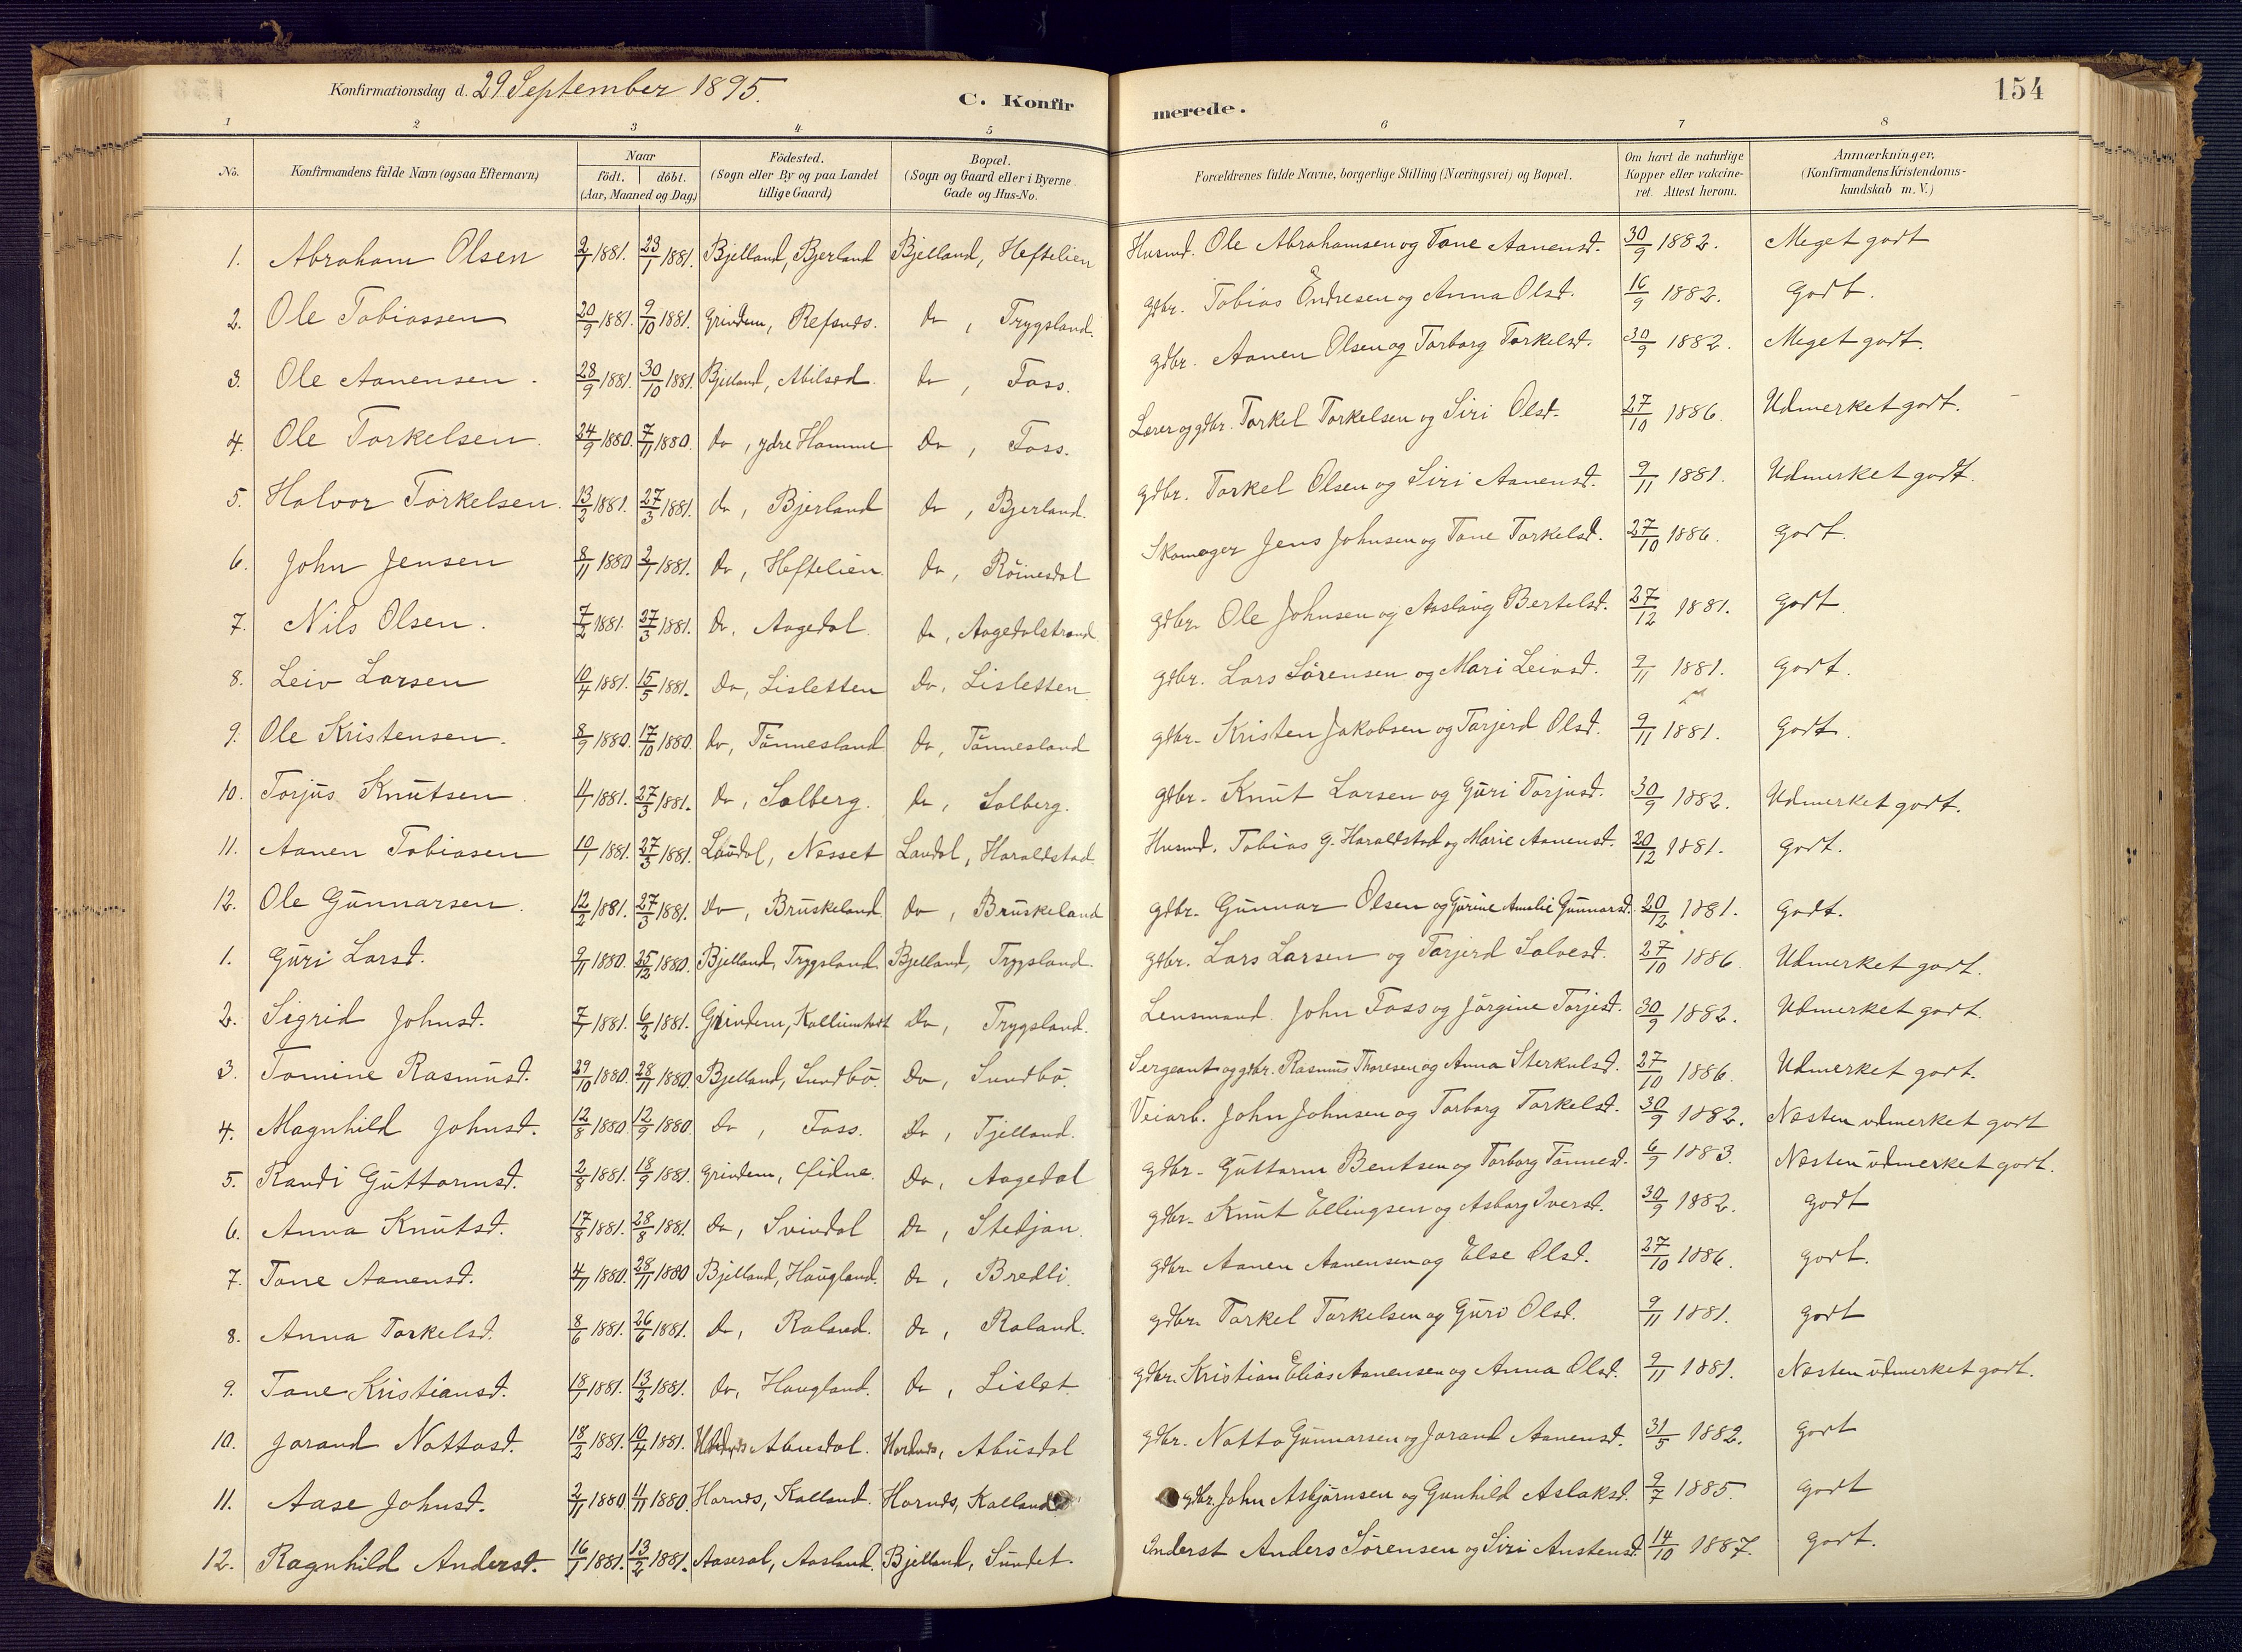 Konfirmationsdag d. 29 September 1895.
C. Konfirmerede.
154
1 2 3 4 5 6 7 8
No.
Konfirmandens fulde Navn (ogsaa Efternavn)
Naar
födt. döbt.
(Aar, Maaned og Dag)
Födested.
(Sogn eller By og paa Landet
tillige Gaard)
Bopæl.
(Sogn og Gaard eller i Byerne
Gade og Hus-No.
Forældrenes fulde Navne, borgerlige Stilling (Næringsvei) og Bopæl.
Om havt de naturlige
Kopper eller vakcine-
ret. Attest herom.
Anmærkninger.
(Konfirmandens Kristendoms-
kundskab m. V.)
1. Abraham Olsen 2/1 1881. 23/1 1881. Bjelland, Bjerland Bjelland, Heftelien Husmd. Ole Abrahamsen og Tone Aanensd. 30/9 1882. Meget godt
2. Ole Tobiassen 20/9 1881. 9/10 1881. Grindem, Refsnes. do, Trygsland. gdbr. Tobias Endresen og Anna Olsd. 16/9 1882. Godt.
3. Ole Aanensen. 28/9 1881. 30/10 1881. Bjelland, Abilsød. do, Foss. gdbr. Aanen Olsen og Torborg Torkelsd. 30/9 1882. Meget godt.
4. Ole Torkelsen. 24/9 1880. 7/11 1880. do, ydre Homme do, Foss. Lærer og gdbr. Torkel Torkelsen og Siri Olsd. 27/10 1886. Udmerket godt.
5. Halvor Torkelsen. 13/2 1881. 27/3 1881. do, Bjerland do, Bjerland. gdbr. Torkel Olsen og Siri Aanensd. 9/11 1881. Udmerket godt.
6. John Jensen 8/11 1880 2/1 1881. do, Heftelien. do, Röinesdal Skomager Jens Johnsen og Tone Torkelsd. 27/10 1886. godt.
7. Nils Olsen. 7/2 1881. 27/3 1881. do, Aagedal. do, Aagedalstrand gdbr. Ole Johnsen og Aaslaug Bertelsd. 27/12 1881. godt
8. Leiv Larsen 10/4 1881. 15/5 1881. do, Lisletten do, Lisletten gdbr. Lars Sörensen og Mari Leivsd. 9/11 1881. godt.
9. Ole Kristensen. 8/9 1880. 17/10 1880. do, Tönnesland do, Tönnesland gdbr. Kristen Jakobsen og Torjerd Olsd. 9/11 1881. godt.
10. Torjus Knutsen. 4/1 1881. 27/3 1881. do, Solberg. do, Solberg. gdbr. Knut Larsen og Guri Torjusd. 30/9 1882. Udmerket godt.
11. Aanen Tobiasen 10/1 1881. 27/3 1881. Laudal, Nesset Laudal, Haraldstad. Husmd. Tobias G. Haraldstad og Marie Aanensd. 20/12 1881. godt.
12. Ole Gunnarsen. 12/2 1881. 27/3 1881. do, Bruskeland. do, Bruskeland gdbr. Gunnar Olsen og Gurine Amalie Gunnarsd. 20/12 1881. godt.
1. Guri Larsd. 9/11 1880. 25/12 1880. Bjelland, Trygsland Bjelland, Trygsland. gdbr. Lars Larsen og Torjerd Salvesd. 27/10 1886. Udmerket godt.
2. Sigrid Johnsd. 7/1 1881. 6/2 1881. Grindem, do, Trygsland. Lensmand John Foss og Jörgine Torjesd. 30/9 1882. Udmerket godt.
3. Tomine Rasmusd. 29/10 1880. 28/11 1880. Bjelland, Sundbö. do, Sundbö. Sergeant og gdbr. Rasmus Thoresen og Anna Sterkulsd. 27/10 1886. Udmerket godt.
4. Magnhild Johnsd. 12/8 1880. 12/9 1880. do, Foss. do, Tjelland. Veiarb. John Johnsen og Torborg Torkelsd. 30/9 1882. Næsten udmerket godt
5. Randi Guttormsd. 2/8 1881. 18/9 1881. Grindem, do, Aagedal gdbr. Guttorm Bentsen og Torborg Tönnesd. 6/9 1883. Næsten udmerket godt.
6. Anna Knutsd. 17/8 1881. 28/8 1881. do, Svindal do, Stedjan. gdbr. Knut Ellingsen og Asborg Iversd. 30/9 1882. godt
7. Tone Aanensd. 4/11 1880. 28/11 1880 Bjelland, Haugland. do, Bredli. gdbr. Aanen Aanensen og Else Olsd. 27/10 1886. godt.
8. Anna Torkelsd. 8/6 1881. 26/6 1881. do, Roland. do, Roland. gdbr. Torkel Torkelsen og Guro Olsd. 9/11 1881. godt
9. Tone Kristiansd. 18/1 1881. 13/2 1881. do, Haugland. do, Lislet. gdbr. Kristian Elias Aanensen og Anna Olsd. 9/11 1881. Næsten udmerket godt.
10. Jorand Nottosd. 18/2 1881. 10/4 1881. Abusdal. Hornnes, Abusdal gdbr. Notto Gunnarsen og Jorand Aanensd. 31/5 1882. godt
11. Aase Johnsd. 2/11 1880. 4/11 1880. Hornes, Kalland. Hornes, Kalland gdbr. John Asbjörnsen og Gunhild Aslaksd. 9/7 1885. godt
12. Ragnhild Andersd. 16/1 1881. 13/2 1881. Aaseral, Aasland. Bjelland, Sundet. Inderst Anders Sörensen og Siri Austensd. 14/10 1887. godt.